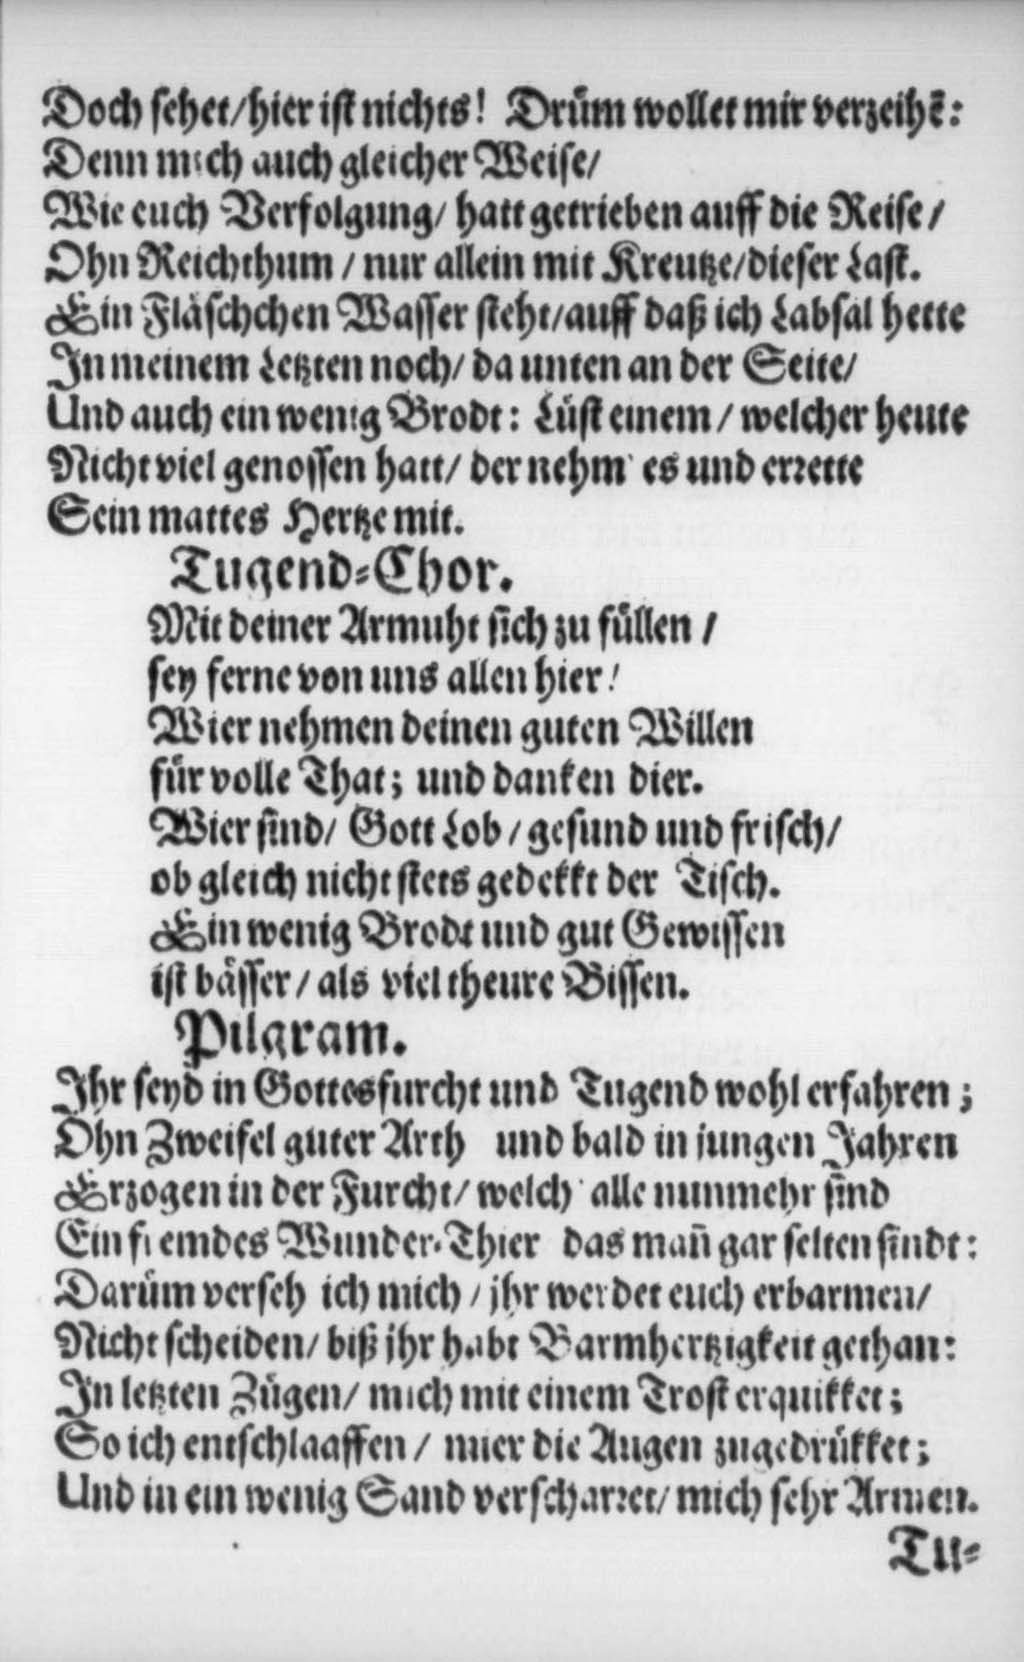 Doch sehet/hier ist nichts! Drüm wollet mir verzeihẽ:
Denn mich auch gleicher Weise/
Wie euch Verfolgung/ hatt getrieben auff die Reise/
Ohn Reichthum / nur allein mit Kreutze/dieser Last.
Ein Fläschchen Wasser steht/auff daß ich Labsal hette
In meinem Letzten noch/ da unten an der Seite/
Und auch ein wenig Brodt: Lüst einem / welcher heute
Nicht viel genossen hatt/ der nehm' es und errette
Sein mattes Hertze mit.
Tugend-Chor.
Mit deiner Armuht sich zu füllen /
sey ferne von uns allen hier!
Wier nehmen deinen guten Willen
für volle That; und danken dier.
Wier sind/ Gott Lob / gesund und frisch/
ob gleich nicht stets gedekkt der Tisch.
Ein wenig Brodt und gut Gewissen
ist bässer / als viel theure Bissen.
Pilgram.
Ihr seyd in Gottesfurcht und Tugend wohl erfahren;
Ohn Zweifel guter Arth und bald in jungen Jahren
Erzogen in der Furcht/ welch' alle nunmehr sind
Ein fremdes Wunder-Thier das mañ gar selten findt:
Darüm verseh ich mich / jhr werdet euch erbarmen/
Nicht scheiden/ biß jhr habt Barmhertzigkeit gethan:
In letzten Zügen/ mich mit einem Trost erquikket;
So ich entschlaaffen / mier die Augen zugedrükket;
Und in ein wenig Sand verscharret/ mich sehr Armen.
Tu-